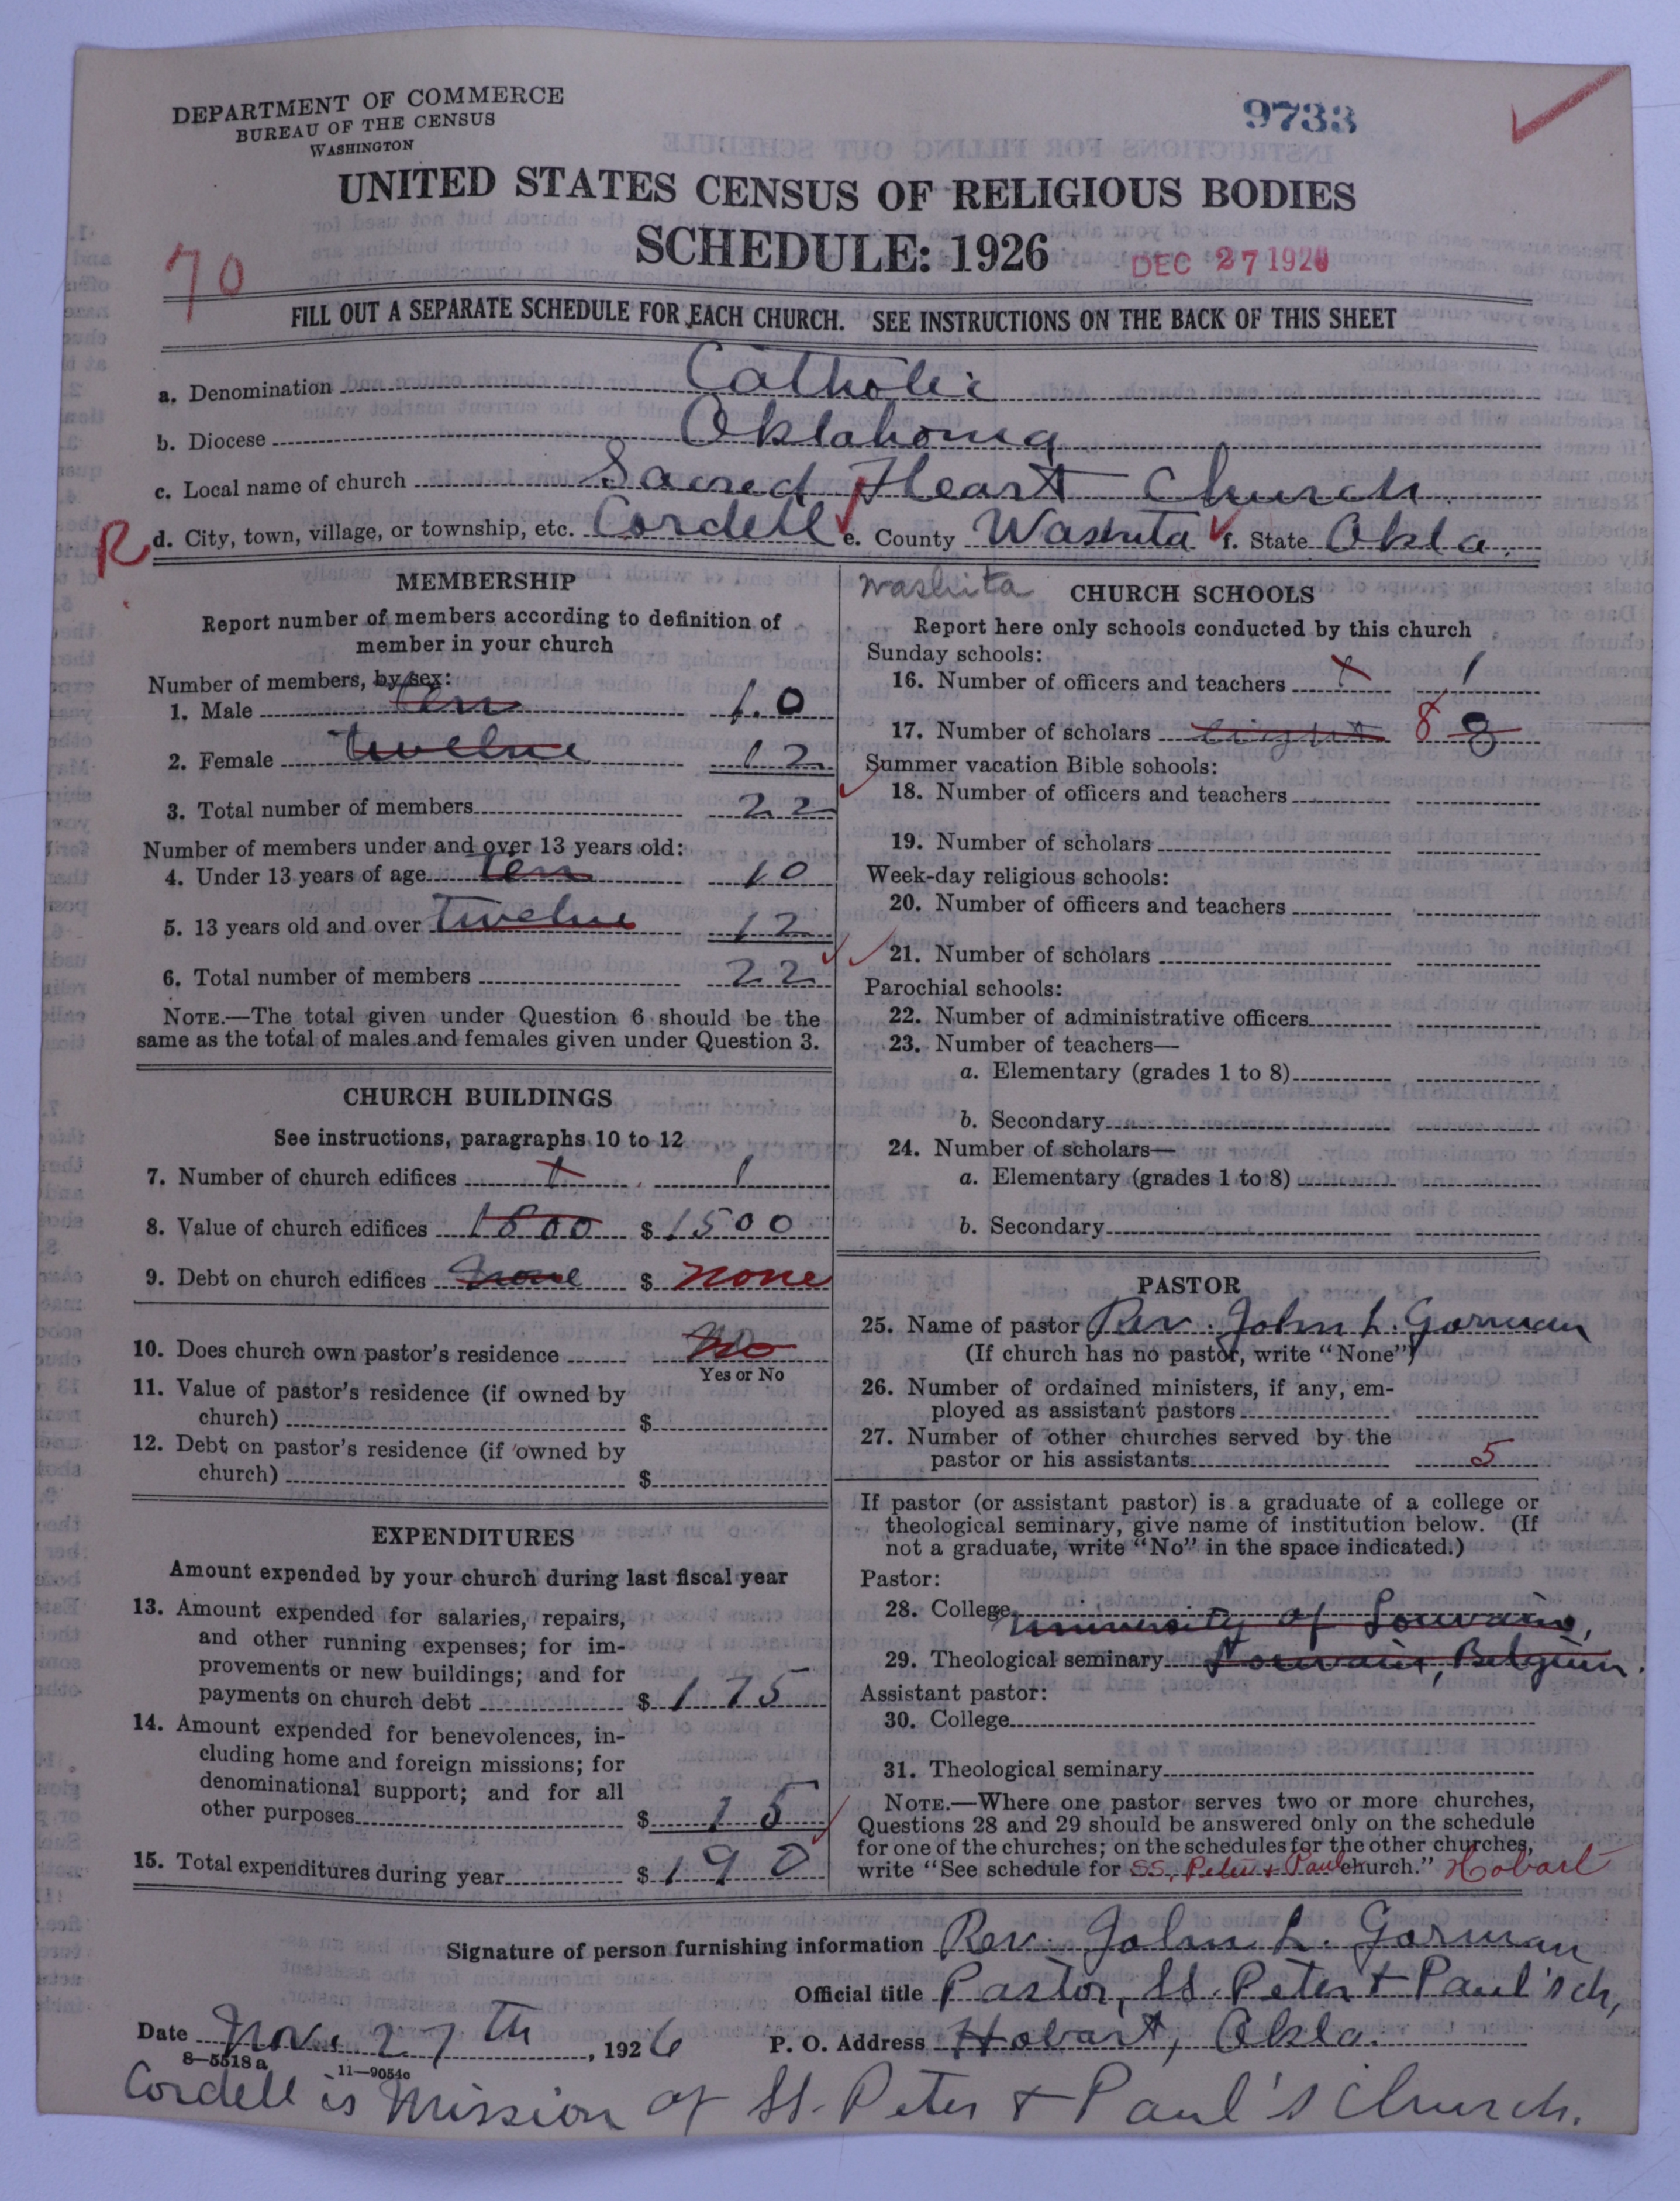 DEPARTMENT OF COMMERCE
BUREAU OF THE CENSUS
WASHINGTON
9733
UNITED STATES CENSUS OF RELIGIOUS BODIES
SCHEDULE: 1926
DEC 27 1926
70
FILL OUT A SEPARATE SCHEDULE FOR EACH CHURCH. SEE INSTRUCTIONS ON THE BACK OF THIS SHEET
a. Denomination Catholic
b. Diocese Oklahoma
c. Local name of church Sacred Heart Church
R d. City, town, village, or township, etc. Cordell e. County Washita f. State Okla.
MEMBERSHIP
Report number of members according to definition of
member in your church
Number of members, by sex:
1. Male ten 10
2. Female twelve 12
3. Total number of members 22
Number of members under and over 13 years old:
4. Under 13 years of age ten 10
5. 13 years old and over twelve 12
6. Total number of members 22
NOTE.—The total given under Question 6 should be the
same as the total of males and females given under Question 3.
CHURCH BUILDINGS
See instructions, paragraphs 10 to 12
7. Number of church edifices 1 1
8. Value of church edifices 1800 $ 1500
9. Debt on church edifices none $ none
10. Does church own pastor's residence No
Yes or No
11. Value of pastor's residence (if owned by
church) $
12. Debt on pastor's residence (if owned by
church) $
EXPENDITURES
Amount expended by your church during last fiscal year
13. Amount expended for salaries, repairs,
and other running expenses; for im-
provements or new buildings; and for
payments on church debt $ 175
14. Amount expended for benevolences, in-
cluding home and foreign missions; for
denominational support; and for all
other purposes $ 15
15. Total expenditures during year $ 190
Washita
CHURCH SCHOOLS
Report here only schools conducted by this church
Sunday schools:
16. Number of officers and teachers 1 1
17. Number of scholars eight 8 8
Summer vacation Bible schools:
18. Number of officers and teachers
19. Number of scholars
Week-day religious schools:
20. Number of officers and teachers
21. Number of scholars
Parochial schools:
22. Number of administrative officers
23. Number of teachers—
a. Elementary (grades 1 to 8)
b. Secondary
24. Number of scholars—
a. Elementary (grades 1 to 8)
b. Secondary
PASTOR
25. Name of pastor Rev. John L. Gorman
(If church has no pastor, write "None")
26. Number of ordained ministers, if any, em-
ployed as assistant pastors
27. Number of other churches served by the
pastor or his assistants 5
If pastor (or assistant pastor) is a graduate of a college or
theological seminary, give name of institution below. (If
not a graduate, write "No" in the space indicated.)
Pastor:
28. College University of Louvain,
29. Theological seminary Louvain, Belgium.
Assistant pastor:
30. College
31. Theological seminary
NOTE.—Where one pastor serves two or more churches,
Questions 28 and 29 should be answered only on the schedule
for one of the churches; on the schedules for the other churches,
write "See schedule for SS. Peter & Paul church." Hobart
Signature of person furnishing information Rev. John L. Gorman
Official title Pastor, SS. Peter & Paul's ch,
Date Nov. 27th, 1926 P. O. Address Hobart, Okla.
8—5518 a 11—9054c
Cordell is Mission of SS. Peter & Paul's Church.